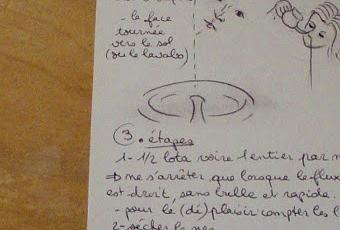 - la face
tournée
vers le sol
(ou le lavabo)
3. étapes
1- 1/2 lota voire l'entier par n
⇒ ne s'arrêter que lorsque le flux
est droit, sans bulle et rapide.
- pour le (dé)plaisir compter les l
2- sécher le nez